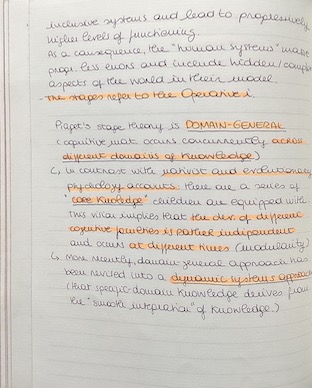 inclusive systems and lead to progressively
higher levels of functioning.
As a consequence, the "human systems" make
progr. less errors and include hidden/complex
aspects of the world in their model.
- The stages refer to the Operative i.
Piaget's stage theory is DOMAIN-GENERAL
(cognitive mat. occurs concurrently across
different domains of knowledge)
↳ in contrast with nativist and evolutionary
psychology accounts: there are a series of
"core knowledge" children are equipped with
this view implies that the dev. of different
cognitive functions is rather independent
and occurs at different times (modularity)
↳ more recently, domain-general approach has
been revised into a dynamic systems approach
(that specific-domain knowledge derives from
the "smooth integration" of knowledge.)